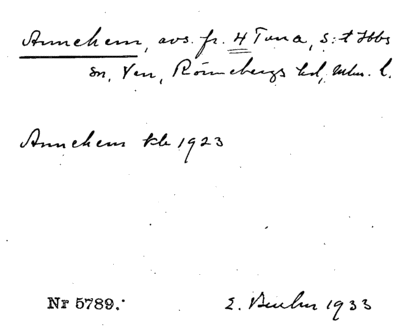 Annehem, avs. fr. 4 Tuna, S:t Ibbs
sn, Ven, Rönnebergs hd, Mlm. l.
Annehem kb 1923
Nr 5789.
1933